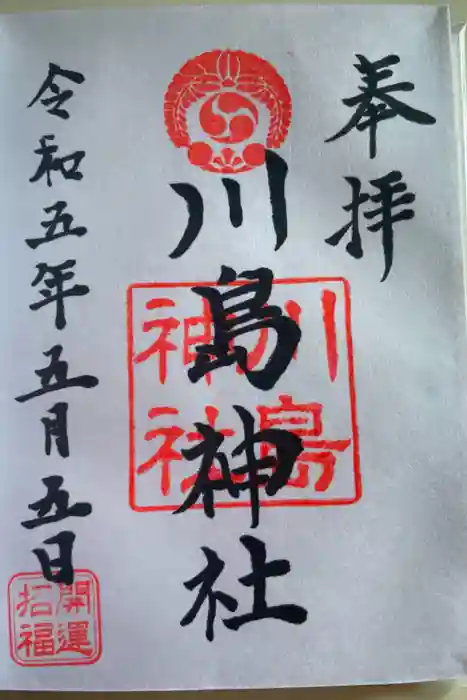 奉拝
川島神社
川島
神社
令和五年五月五日
開運
招福